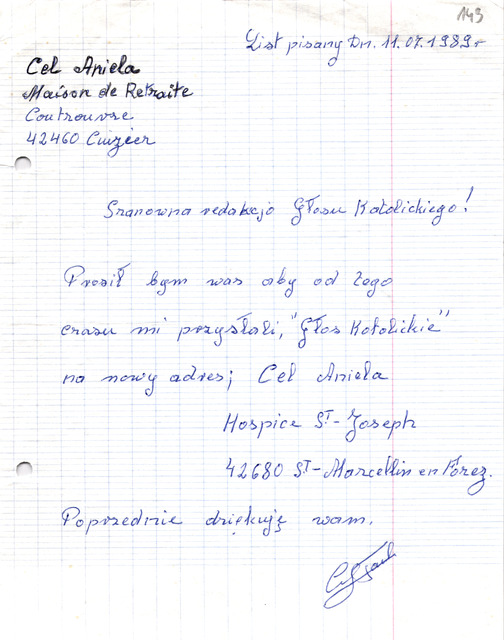 143
List pisany Dn. 11.07.1989r
Cel Aniela
Maison de Retraite
Coutrouvre
42460 Cuizier
Szanowna redakcjo Głosu Katolickiego!
Prosił bym was aby od tego
czasu mi przysłali, "Głos Katolickie"
na nowy adres; Cel Aniela
Hospice ST-Joseph
42680 ST-Marcellin en Forez.
Poprzednie dziękuję wam.